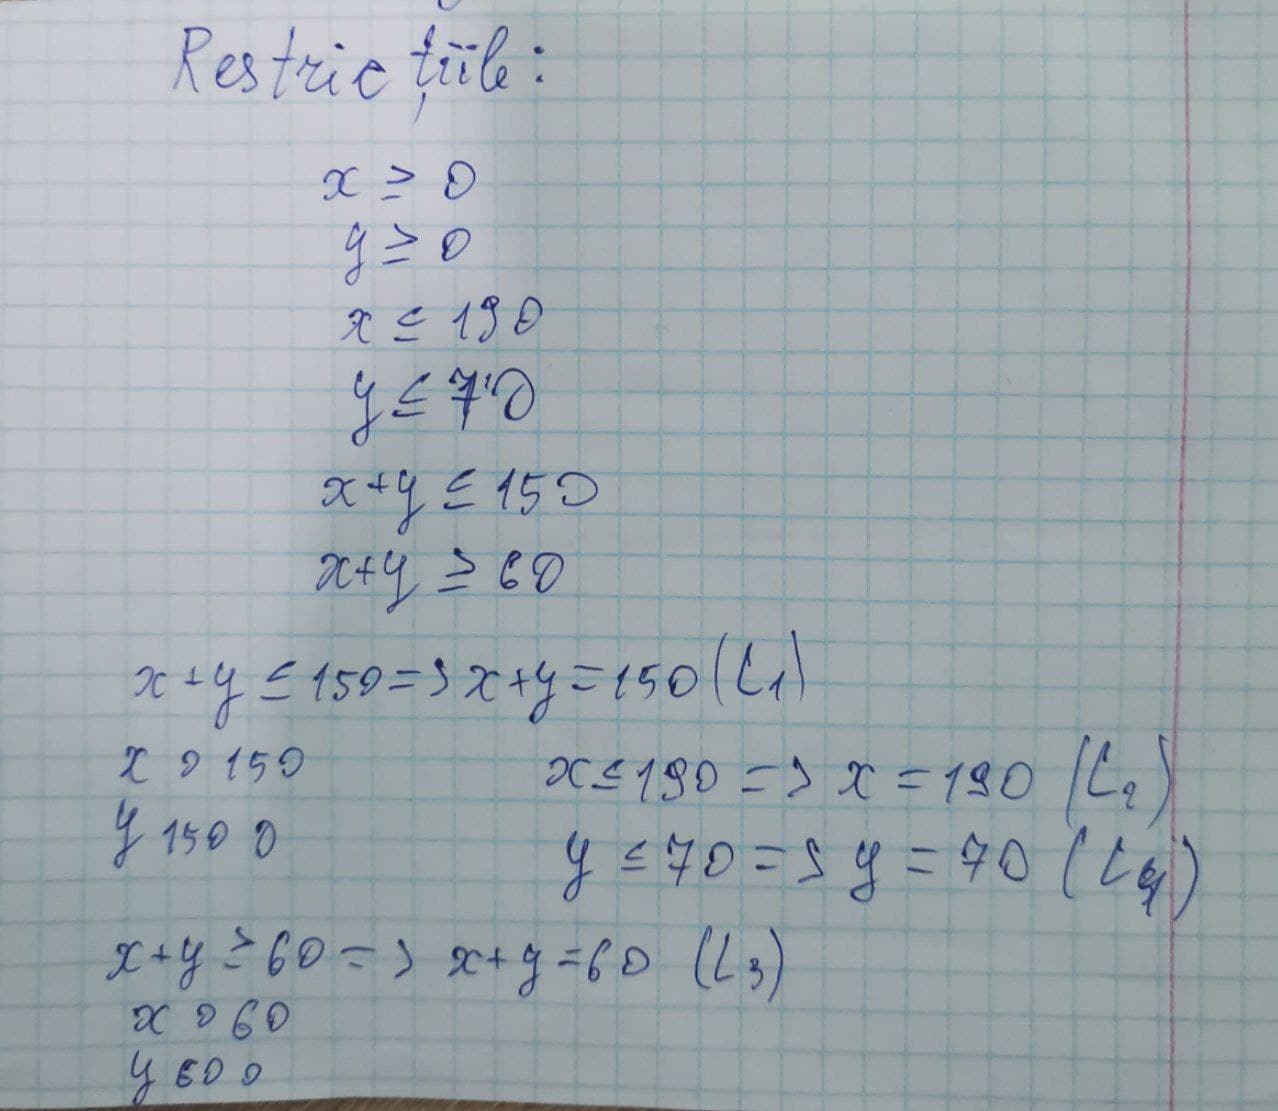 Restricțiile:
x ≥ 0
y ≥ 0
x ≤ 190
y ≤ 70
x+y ≤ 150
x+y ≥ 60
x+y ≤ 150 => x+y = 150 (L1)
x 0 150
y 150 0
x ≤ 190 => x = 190 (L2)
y ≤ 70 => y = 70 (L4)
x+y ≥ 60 => x+y = 60 (L3)
x 0 60
y 60 0